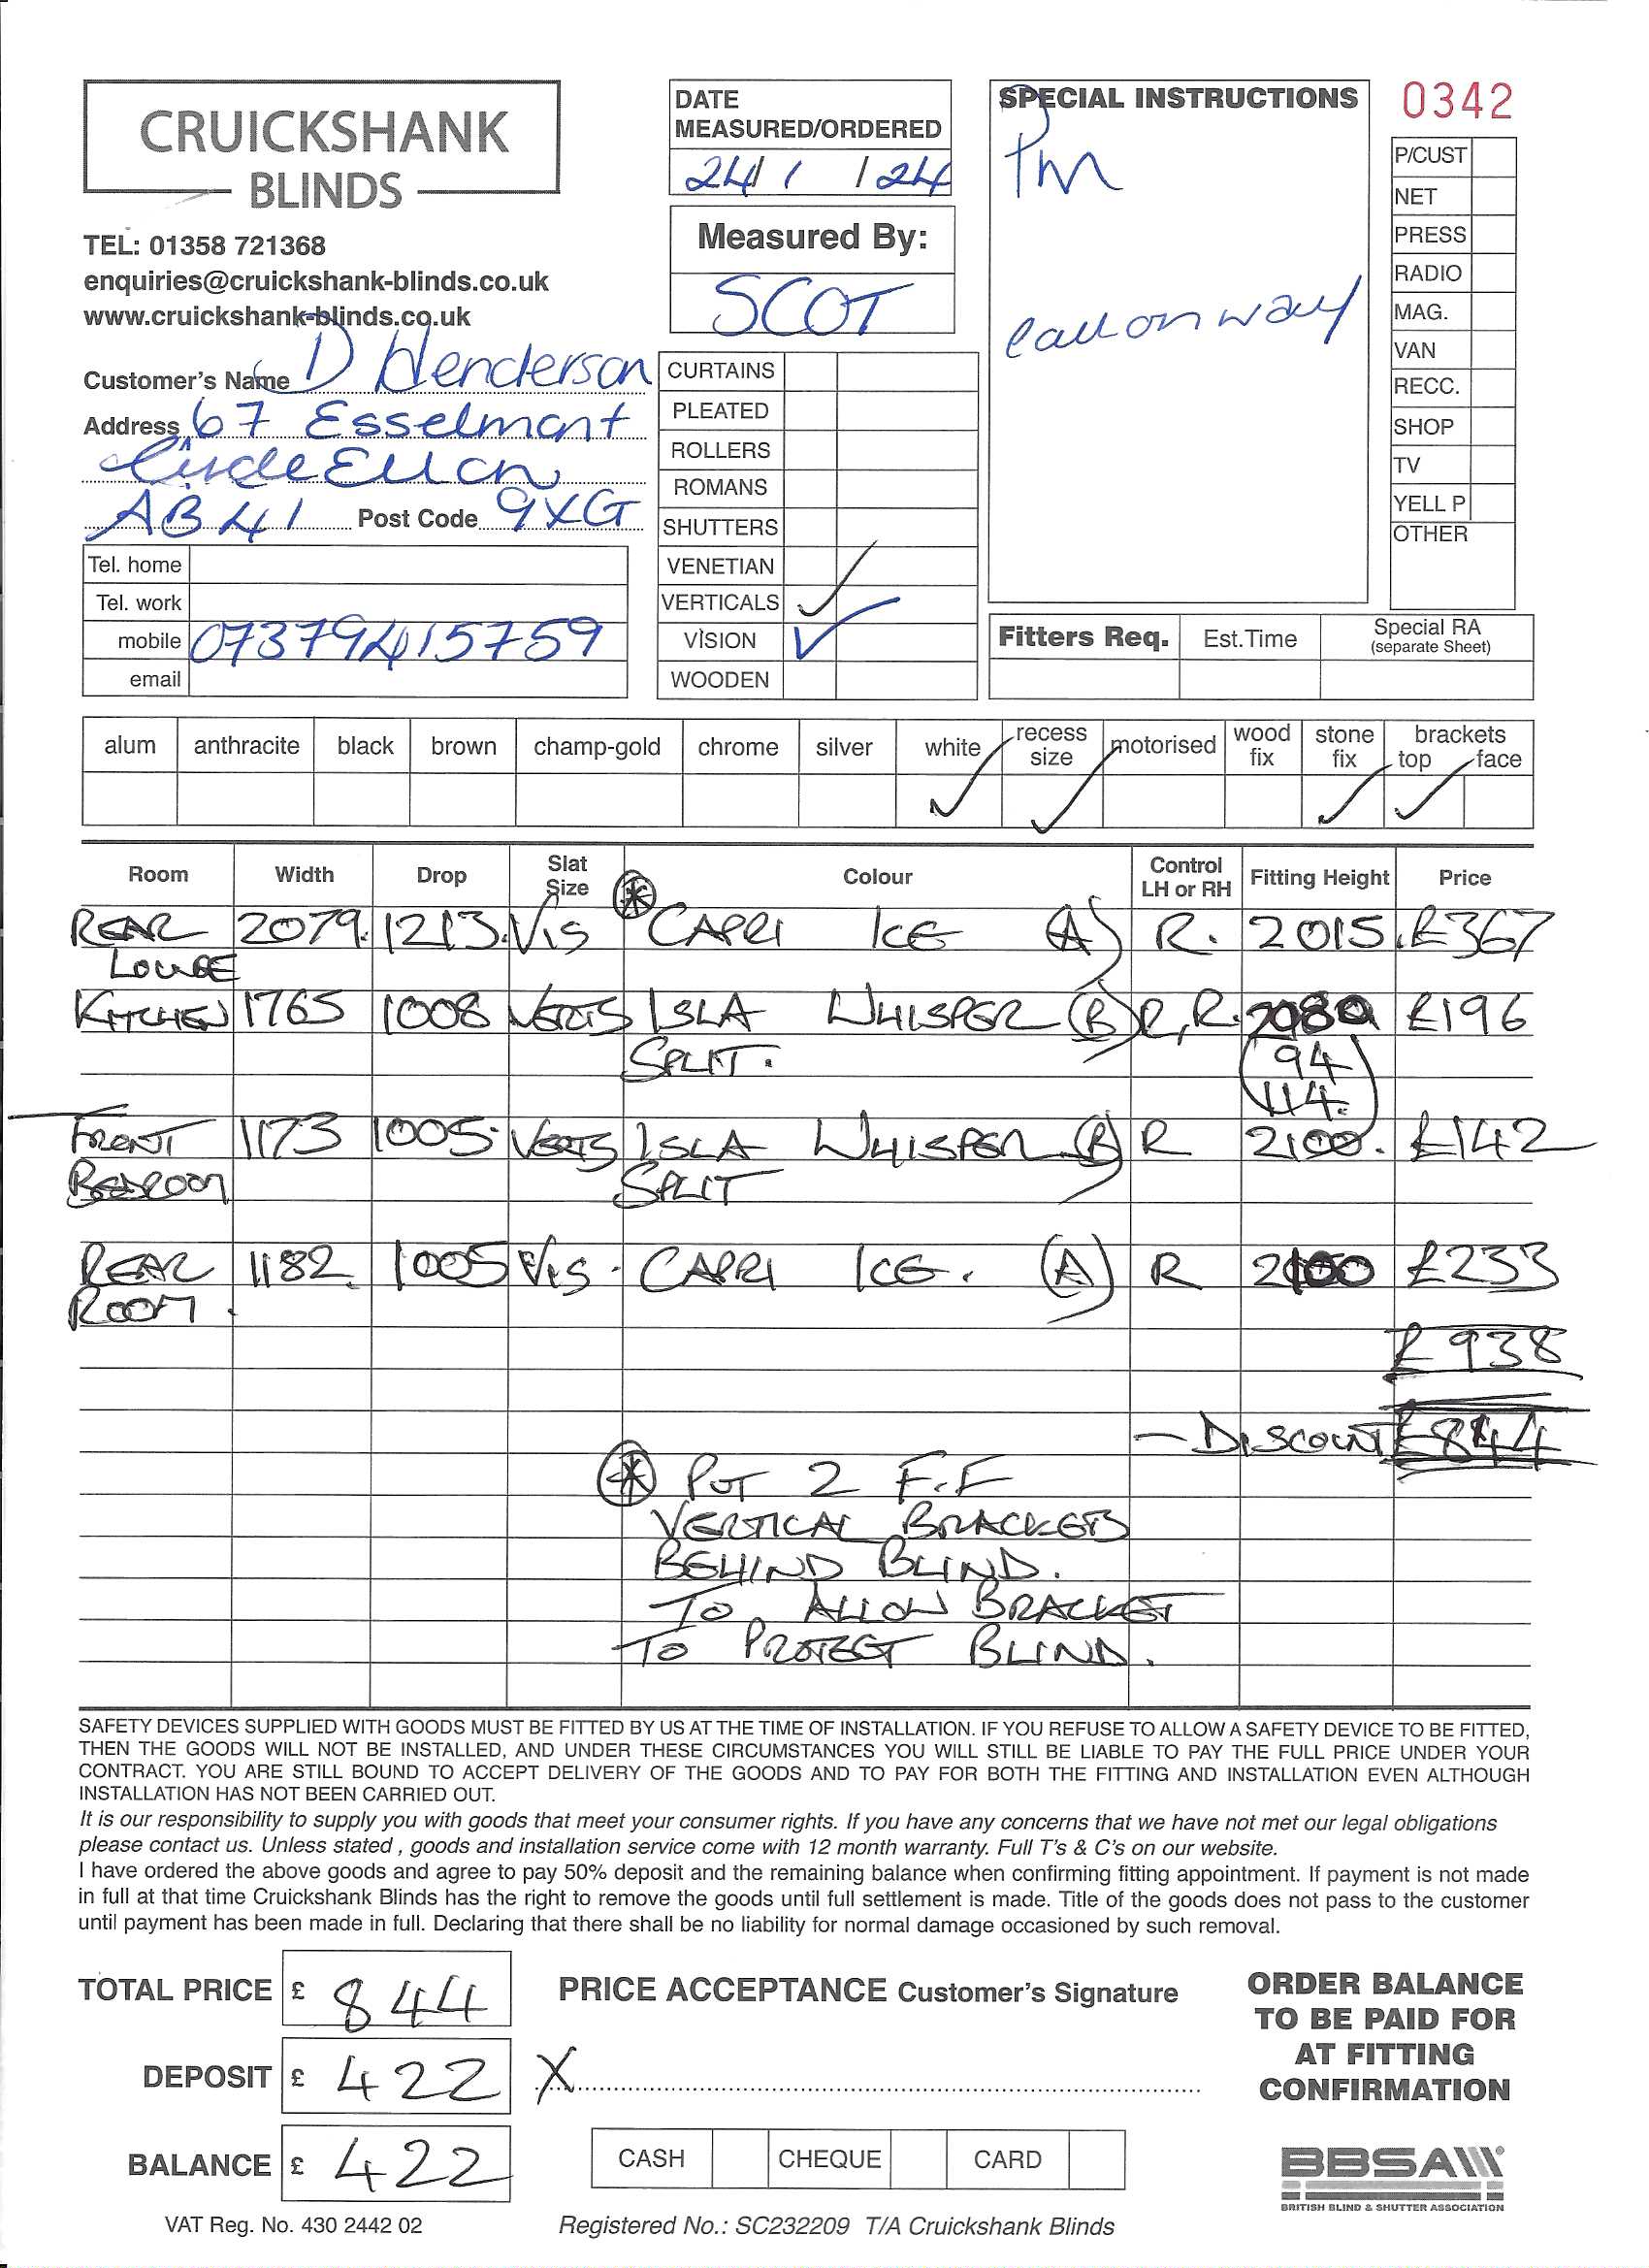 CRUICKSHANK
BLINDS
TEL: 01358 721368
enquiries@cruickshank-blinds.co.uk
www.cruickshank-blinds.co.uk
DATE
MEASURED/ORDERED
24/1/24
Measured By:
SCOT
SPECIAL INSTRUCTIONS
Pm
call on way
0342
P/CUST
NET
PRESS
RADIO
MAG.
VAN
RECC.
SHOP
TV
YELL P
OTHER
Customer's Name D Henderson
Address 67 Esselmont
Circle Ellon
AB41 Post Code 9XG
Tel. home
Tel. work
mobile 07379415759
email
CURTAINS
PLEATED
ROLLERS
ROMANS
SHUTTERS
VENETIAN
VERTICALS ✓
VISION ✓
WOODEN
Fitters Req. Est.Time Special RA
(separate Sheet)
alum anthracite black brown champ-gold chrome silver white recess size motorised wood fix stone fix brackets top face
✓ ✓ ✓ ✓
Room Width Drop Slat Size Colour Control LH or RH Fitting Height Price
REAR 2079. 1213. VIS * CAPRI ICE (A) R. 2015. £367
LOUNGE
KITCHEN 1765 1008 VERTS ISLA WHISPER (B) R,R. 2080 £196
SPLIT. (94
114.)
FRONT 1173 1005. VERTS ISLA WHISPER (B) R 2100. £142
BEDROOM SPLIT
REAR 1182. 1005 VIS. CAPRI ICE. (A) R 2100 £233
ROOM.
£938
- DISCOUNT £844
* PUT 2 F.F
VERTICAL BRACKETS
BEHIND BLIND.
TO ALLOW BRACKET
TO PROTECT BLIND.
SAFETY DEVICES SUPPLIED WITH GOODS MUST BE FITTED BY US AT THE TIME OF INSTALLATION. IF YOU REFUSE TO ALLOW A SAFETY DEVICE TO BE FITTED,
THEN THE GOODS WILL NOT BE INSTALLED, AND UNDER THESE CIRCUMSTANCES YOU WILL STILL BE LIABLE TO PAY THE FULL PRICE UNDER YOUR
CONTRACT. YOU ARE STILL BOUND TO ACCEPT DELIVERY OF THE GOODS AND TO PAY FOR BOTH THE FITTING AND INSTALLATION EVEN ALTHOUGH
INSTALLATION HAS NOT BEEN CARRIED OUT.
It is our responsibility to supply you with goods that meet your consumer rights. If you have any concerns that we have not met our legal obligations
please contact us. Unless stated , goods and installation service come with 12 month warranty. Full T's & C's on our website.
I have ordered the above goods and agree to pay 50% deposit and the remaining balance when confirming fitting appointment. If payment is not made
in full at that time Cruickshank Blinds has the right to remove the goods until full settlement is made. Title of the goods does not pass to the customer
until payment has been made in full. Declaring that there shall be no liability for normal damage occasioned by such removal.
TOTAL PRICE £ 844
DEPOSIT £ 422
BALANCE £ 422
PRICE ACCEPTANCE Customer's Signature
X
CASH CHEQUE CARD
ORDER BALANCE
TO BE PAID FOR
AT FITTING
CONFIRMATION
BBSA
BRITISH BLIND & SHUTTER ASSOCIATION
VAT Reg. No. 430 2442 02
Registered No.: SC232209 T/A Cruickshank Blinds